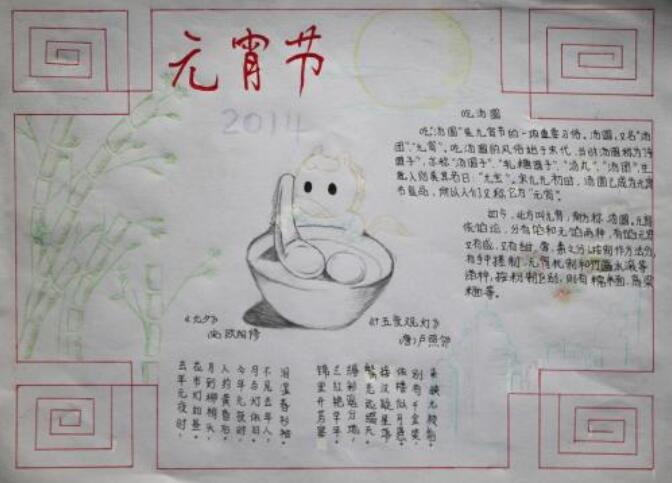 元宵节
2014
吃汤圆
吃"汤圆"是元宵节的一项重要习俗。汤圆,又名"汤
团""元宵"。吃汤圆的风俗始于宋代,当时汤圆称为"浮
圆子",亦称"汤圆子""乳糖圆子""汤丸""汤团",生
意人则美其名曰:"元宝"。
如今,北方叫元宵,南方称汤圆。元宵
依馅论,分有馅和无馅两种,有馅元宵
又有咸
有手搓制、元宵机制和
粉区别,则有糯米面、高粱
米面等。
《元夕》
欧阳修
去年元夜时,
花市灯如昼。
月到柳梢头,
人约黄昏后。
今年元夜时,
月与灯依旧。
不见去年人,
泪湿春衫袖。
《十五夜观灯》
(唐)卢照邻
锦里开芳宴,
兰红艳早年。
缛彩遥分地,
繁光远缀天。
接汉疑星落,
依楼似月悬。
别有千金笑,
来映九枝前。